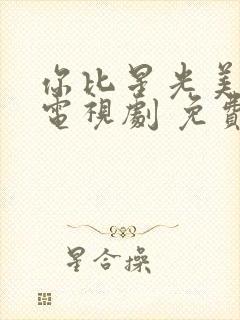 你比星光美
電視劇 免費
星合操